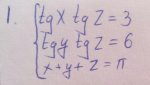 1. { tg x tg z = 3
tg y tg z = 6
x + y + z = π